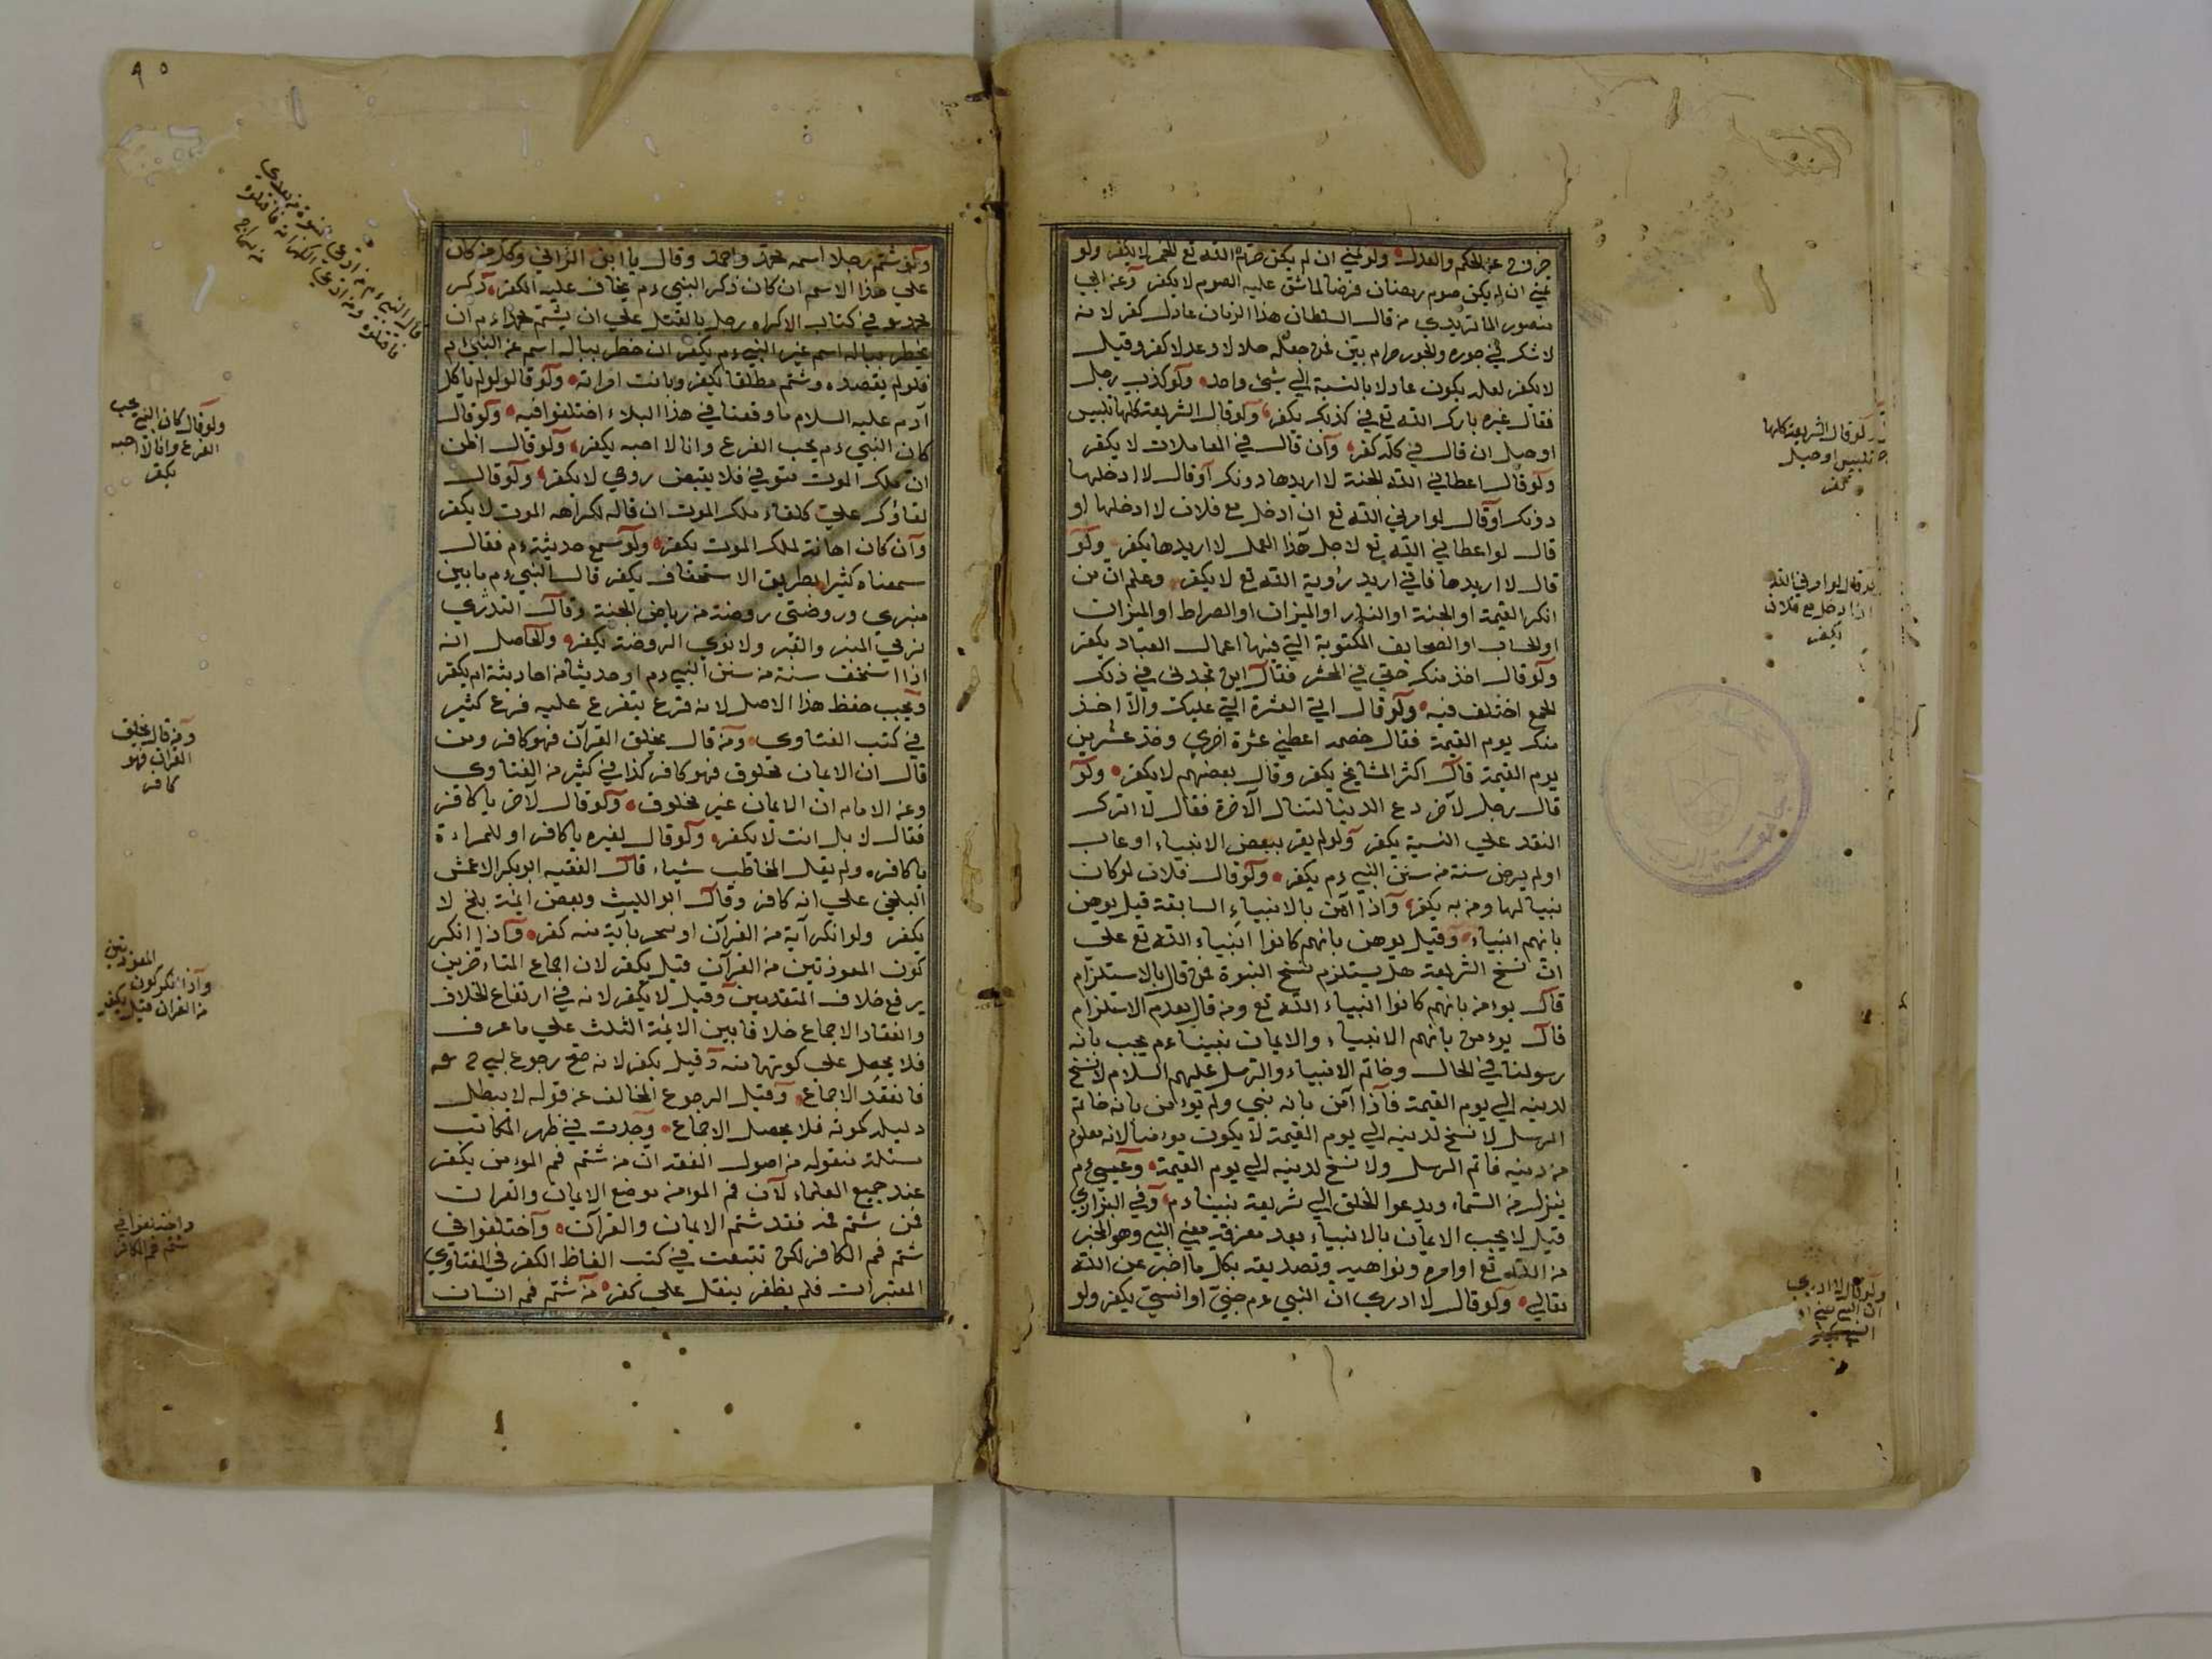 خرج عن الحكم والعدل ولو تمني ان لم يكن حرم الله تع الخمر لا يكفر ولو
تمني ان لم يكن صوم رمضان فرضا لما شق عليه الصوم لا يكفر وعن ابي
منصور الماتريدي من قال السلطان هذا الزمان عادل كفر لانه
لا شك في جوره والجور حرام بيقين فمن جعله حلالا وعدلا كفر وقيل
لا يكفر لعله يكون عادلا بالنسبة الي شيء واحد ولو كذب رجل
فقال غيره بارك الله تع في كذبك يكفر ولو قال الشريعة كلها تلبيس
او حيل ان قال في كله كفر وان قال في المعاملات لا يكفر
ولو قال اعطاني الله الجنة لا اريدها دونك او قال لا ادخلها
دونك او قال لو امرني الله تع ان ادخل مع فلان لا ادخلها او
قال لو اعطاني الله تع لاجل هذا العمل لا اريدها يكفر ولو
قال لا اريدها فاني اريد رؤية الله تع لا يكفر وعلم ان من
انكر القيمة او الجنة او النار او الميزان او الصراط او الميزان
او الحساب او الصحايف المكتوبة التي فيها اعمال العباد يكفر
ولو قال اخذ منك حقي في المحشر فقال اين تجدني في ذلك
الجمع اختلف فيه ولو قال ايتي العشرة التي عليك والا اخذ
منك يوم القيمة فقال خصمه اعطني عشرة اخري وخذ عشرين
يوم القيمة قال اكثر المشايخ يكفر وقال بعضهم لا يكفر ولو
قال رجل لآخر دع الدنيا لتنال الآخرة فقال لا اترك
النقد علي النسية يكفر ولو لم يقر ببعض الانبياء او عاب
او لم يرض سنة من سنن النبي ءم يكفر ولو قال فلان لو كان
نبيا لها ومن به يكفر واذا آمن بالانبياء السابقة قيل يومن
بانهم انبياء وقيل يومن بانهم كانوا انبياء الله تع علي
ان نسخ الشريعة هل يستلزم نسخ النبوة فمن قال بالاستلزام
قال يومن بانهم كانوا انبياء الله تع ومن قال بعدم الاستلزام
قال يومن بانهم الانبياء والايمان نبينا ءم يجب بانه
رسولنا في الحال وخاتم الانبياء والرسل عليهم السلام لا نسخ
لدينه الي يوم القيمة فاذا آمن بانه نبي ولم يومن بانه خاتم
الرسل لا نسخ لدينه الي يوم القيمة لا يكون مومنا لانه معلوم
من دينه خاتم الرسل ولا نسخ لدينه الي يوم القيمة وعيسي ءم
ينزل من السماء ويدعوا الخلق الي شريعة نبينا ءم وفي البزازي
قيل لا يجب الايمان بالانبياء بعد معرفة معني النبي وهو المخبر
من الله تع اوامره ونواهيه وتصديقه بكل ما اخبر عن الله
تعالي ولو قال لا ادري ان النبي ءم جني او انسي يكفر ولو
ولو قال الشريعة كلها
تلبيس او حيل
يكفر
لو قال لو امرني الله
ان ادخل مع فلان
يكفر
ولو قال لا ادري
ولو شتم رجلا اسمه محمد واحمد وقال يا ابن الزاني وكل من كان
علي هذا الاسم ان كان ذكر النبي ءم يخاف عليه الكفر ذكر
محمد في كتاب الاكراه رجل بالقتل علي ان يشتم محمدا ءم ان
يخطر بباله اسم غير النبي ءم يكفر ان خطر بباله اسم غير النبي ءم
فلو لم يقصده وشتم مطلقا يكفر وبانت امراته ولو قال لو لم ياكل
آدم عليه السلام ما وقعنا في هذا البلاء اختلفوا فيه ولو قال
كان النبي ءم يحب القرع وانا لا احبه يكفر ولو قال اظن
ان ملك الموت توفي فلا يقبض روحي لا يكفر ولو قال
لقاؤك علي كلقاء ملك الموت ان قاله لكراهه الموت لا يكفر
وان كان اهانة لملك الموت يكفر ولو سمع حديثه ءم فقال
سمعناه كثيرا بطريق الاستخفاف يكفر قال النبي ءم ما بين
منبري وروضتي روضة من رياض الجنة وقال
نري المنبر والقبر ولا نري الروضة يكفر والحاصل انه
اذا استخف سنة من سنن النبي ءم او حديثا من احاديثه ءم يكفر
ويجب حفظ هذا الاصل لانه فرع يتفرع عليه فرع كثير
في كتب الفتاوى ومن قال بخلق القرآن فهو كافر ومن
قال ان الايمان مخلوق فهو كافر كذا في كثير من الفتاوى
وعن الامام ان الايمان غير مخلوق ولو قال لآخر يا كافر
فقال لا بل انت لا يكفر ولو قال لغيره يا كافر او للمراءة
يا كافره ولم يقل المخاطب شياء قال الفقيه ابو بكر الاعمش
البلخي علي انه كافر وقال ابو الليث وبعض ايمة بلخ لا
يكفر ولو انكر آية من القرآن او سخر بآية منه كفر واذا انكر
كون المعوذتين من القرآن قيل يكفر لان اجماع المتاءخرين
يرفع خلاف المتقدمين وقيل لا يكفر لانه في ارتفاع الخلاف
وانعقاد الاجماع خلافا بين الائمة الثلث علي ما عرف
فلا يحصل علي كونهما منه وقيل يكفر لانه صح رجوع
فانعقد الاجماع وقيل الرجوع المخالف عن قوله لا يبطل
دليله كموته فلا يحصل الاجماع وجدت في ظهر الكاتب
مسئلة منقوله من اصول الفقه ان من شتم فم المومن يكفر
عند جميع العلماء لان فم المومن موضع الايمان والقران
فمن شتم فمه فقد شتم الايمان والقرآن واختلفوا في
شتم فم الكافر لكن تتبعت في كتب الفاظ الكفر في الفتاوي
المعتبرات فلم نظفر بنقل علي كفره من شتم فم انسان
ولو قال كان النبي يحب
القرع وانا لا احبه
يكفر
ومن قال بخلق
القرآن فهو
كافر
المعوذتين
واذا انكر كون
من القران قيل يكفر
واختلفوا في
شتم فم الكافر
٩٥